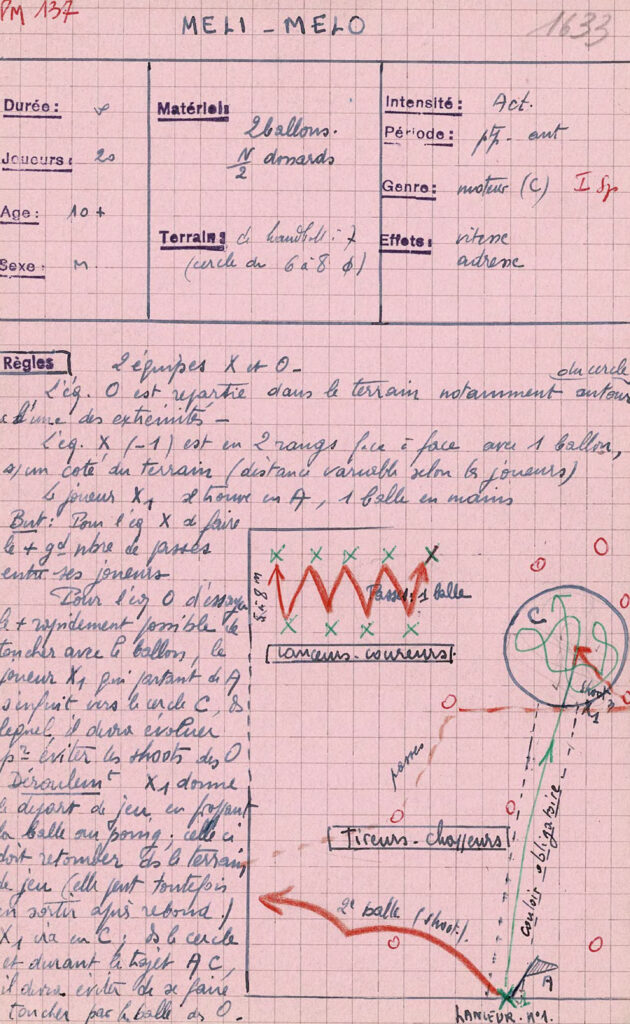 PM 137
MELI - MELO
1633
Durée :
Joueurs : 20
Age : 10 +
Sexe : M.
Matériel :
2 ballons.
N/2 dossards
Terrain : de handball à 7
(cercle du 6 à 8 φ)
Intensité : Act.
Période : - ant
Genre : moteur (C) I Sp
Effets : vitesse
adresse
Règles 2 équipes X et O -
L'éq. O est repartie dans le terrain notamment autour du cercle
d'une des extremités -
L'éq. X (-1) est en 2 rangs face à face avec 1 ballon,
s/ un coté du terrain (distance variable selon les joueurs)
Le joueur X1 se trouve en A, 1 balle en mains
But : Pour l'éq X de faire
le + gd nbre de passes
entre ses joueurs
Pour l'éq O d'essayer
le + rapidement possible de
toucher avec le ballon, le
joueur X1 qui partant de A
s'enfuit vers le cercle C, ds
lequel il devra évoluer
pr éviter les shoots des O
Déroulemt X1 donne
le départ de jeu en frappant
la balle au poing ; celle ci
doit retomber ds le terrain
de jeu (elle peut toutefois
en sortir après rebond.)
X1 ira en C ; ds le cercle
et durant le trajet AC,
il devra éviter de se faire
toucher par la balle des O.
5 à 8 m
Passes, 1 balle
Lanceurs - coureurs
C
shoot
X1
passes
Tireurs - chasseurs
couloir obligatoire
2e balle (shoot).
A
LANCEUR. N°1.